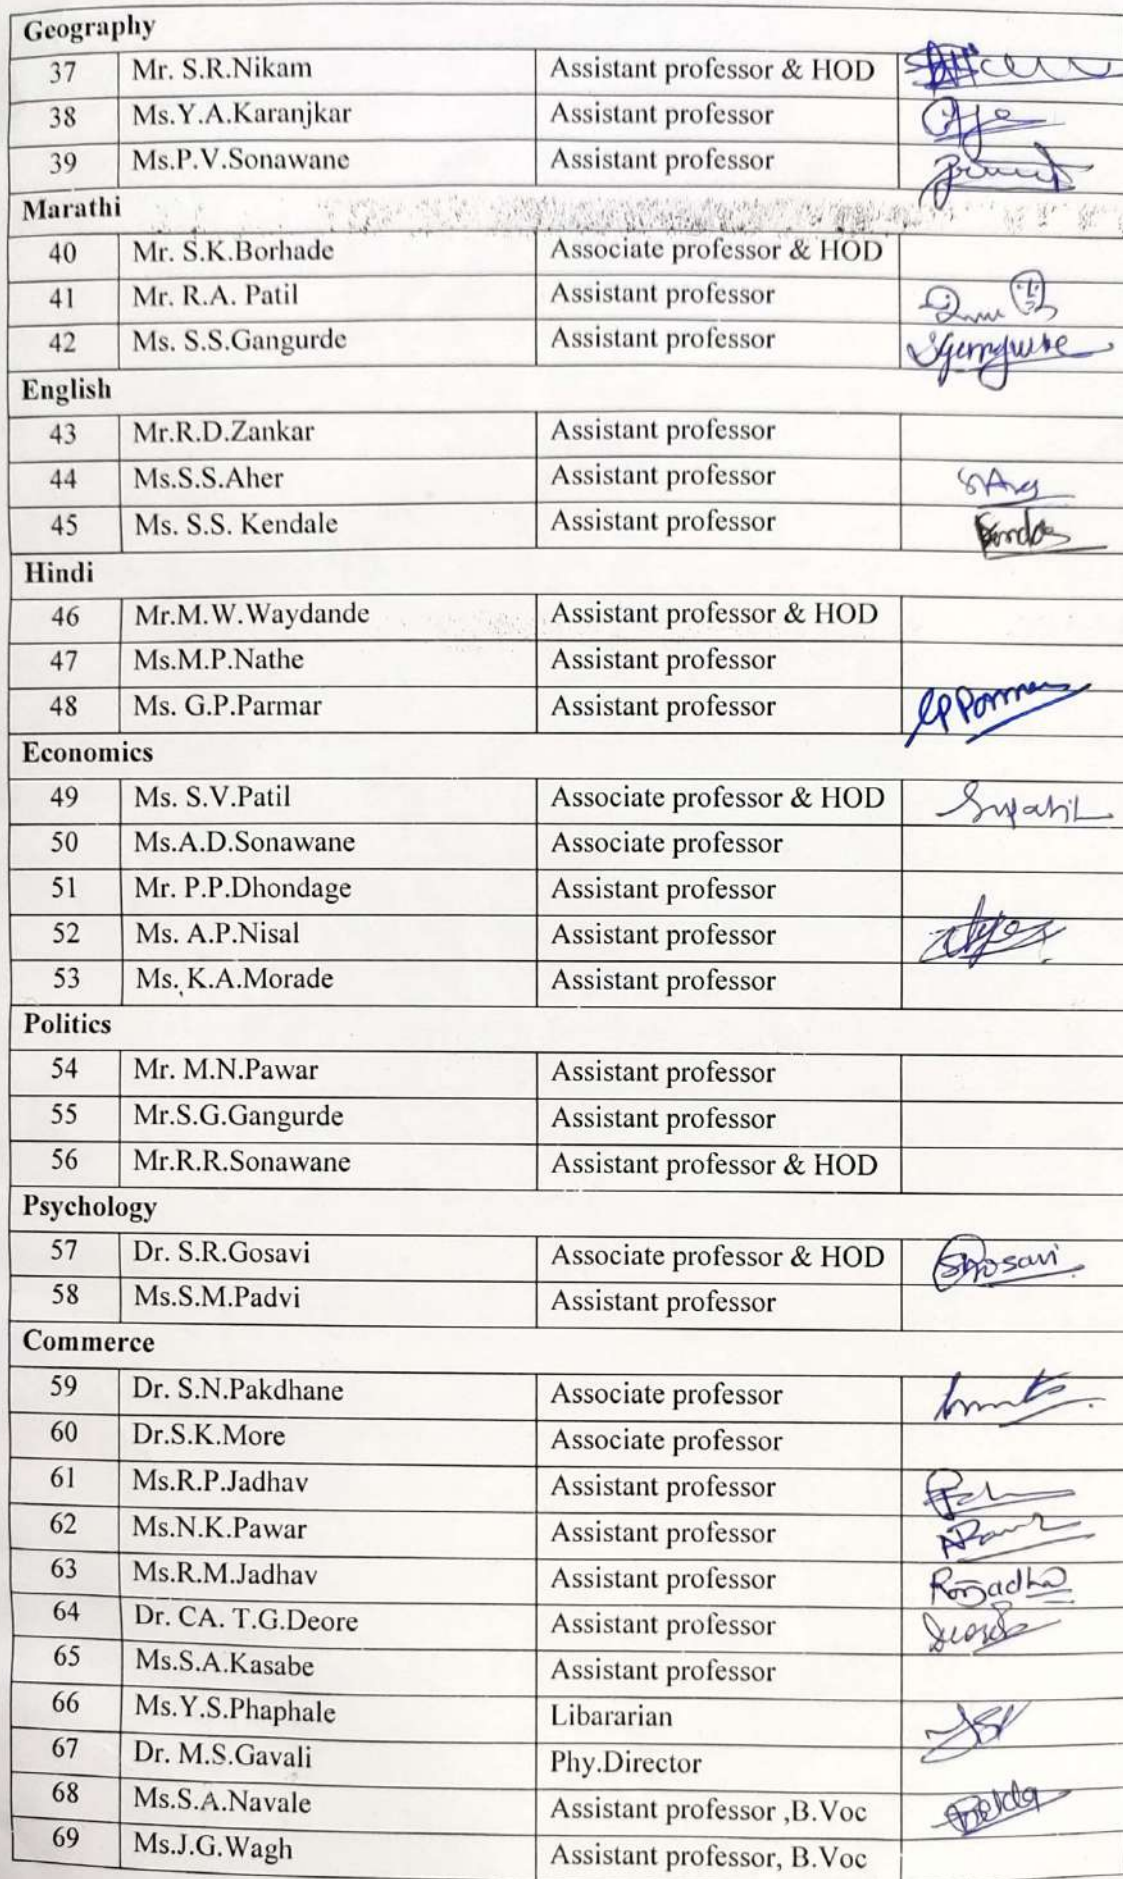 Geography
37 Mr. S.R.Nikam Assistant professor & HOD
38 Ms.Y.A.Karanjkar Assistant professor
39 Ms.P.V.Sonawane Assistant professor
Marathi
40 Mr. S.K.Borhade Associate professor & HOD
41 Mr. R.A. Patil Assistant professor
42 Ms. S.S.Gangurde Assistant professor
English
43 Mr.R.D.Zankar Assistant professor
44 Ms.S.S.Aher Assistant professor
45 Ms. S.S. Kendale Assistant professor
Hindi
46 Mr.M.W.Waydande Assistant professor & HOD
47 Ms.M.P.Nathe Assistant professor
48 Ms. G.P.Parmar Assistant professor
Economics
49 Ms. S.V.Patil Associate professor & HOD
50 Ms.A.D.Sonawane Associate professor
51 Mr. P.P.Dhondage Assistant professor
52 Ms. A.P.Nisal Assistant professor
53 Ms. K.A.Morade Assistant professor
Politics
54 Mr. M.N.Pawar Assistant professor
55 Mr.S.G.Gangurde Assistant professor
56 Mr.R.R.Sonawane Assistant professor & HOD
Psychology
57 Dr. S.R.Gosavi Associate professor & HOD
58 Ms.S.M.Padvi Assistant professor
Commerce
59 Dr. S.N.Pakdhane Associate professor
60 Dr.S.K.More Associate professor
61 Ms.R.P.Jadhav Assistant professor
62 Ms.N.K.Pawar Assistant professor
63 Ms.R.M.Jadhav Assistant professor
64 Dr. CA. T.G.Deore Assistant professor
65 Ms.S.A.Kasabe Assistant professor
66 Ms.Y.S.Phaphale Libararian
67 Dr. M.S.Gavali Phy.Director
68 Ms.S.A.Navale Assistant professor ,B.Voc
69 Ms.J.G.Wagh Assistant professor, B.Voc